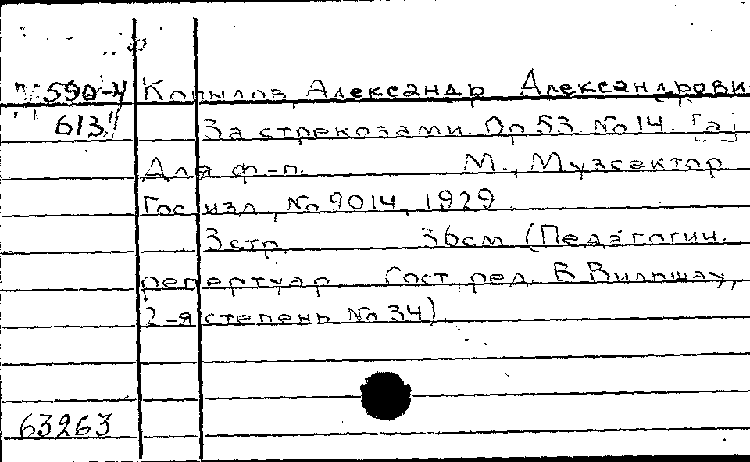 590-4 Копылов, Александр Александрови
613 За стрекозами. Ор 53. No 14. [а]
Для ф-п. М., Музсектор
Госиздл, No 9014, 1929
3 стр. 36см (Педагогич.
репертуар. Сост. ред. В Вильшау,
2-я степень No 34)
63263